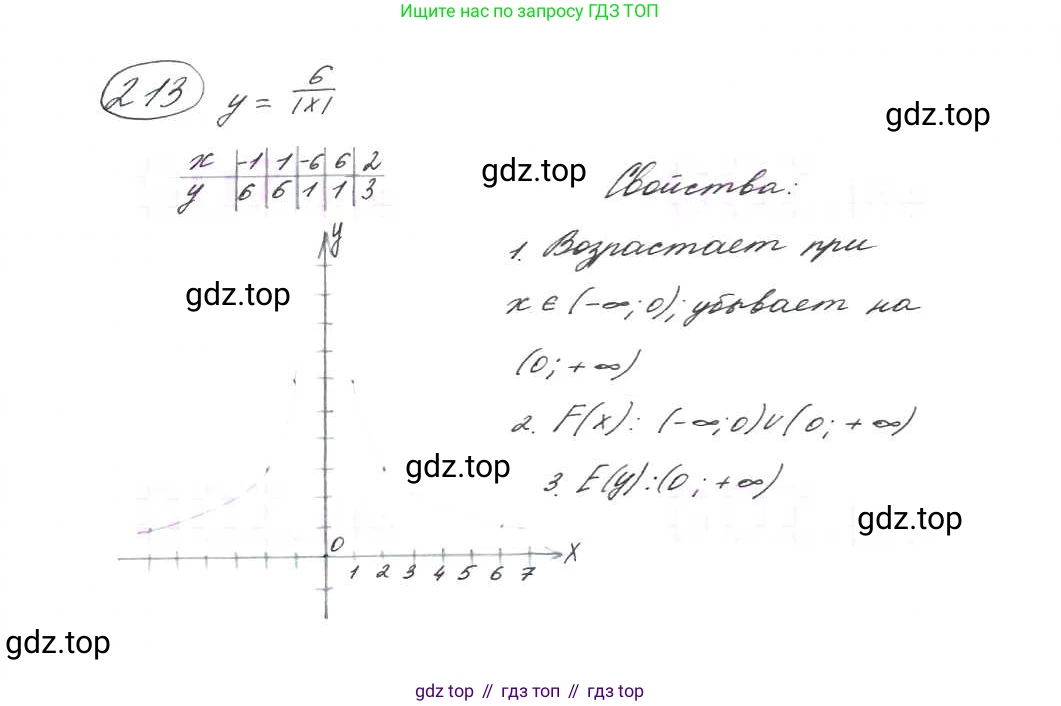 Ищите нас по запросу ГДЗ ТОП
213 y = 6/|x|
gdz.top
x -1 1 -6 6 2
y 6 6 1 1 3
gdz.top
Свойства:
y
1. Возрастает при
gdz.top
x ∈ (-∞; 0); убывает на
(0; +∞)
2. F(x): (-∞; 0) ∪ (0; +∞)
gdz.top
3. E(y): (0; +∞)
gdz.top
0
X
1 2 3 4 5 6 7
gdz.top
gdz top // гдз топ // гдз top